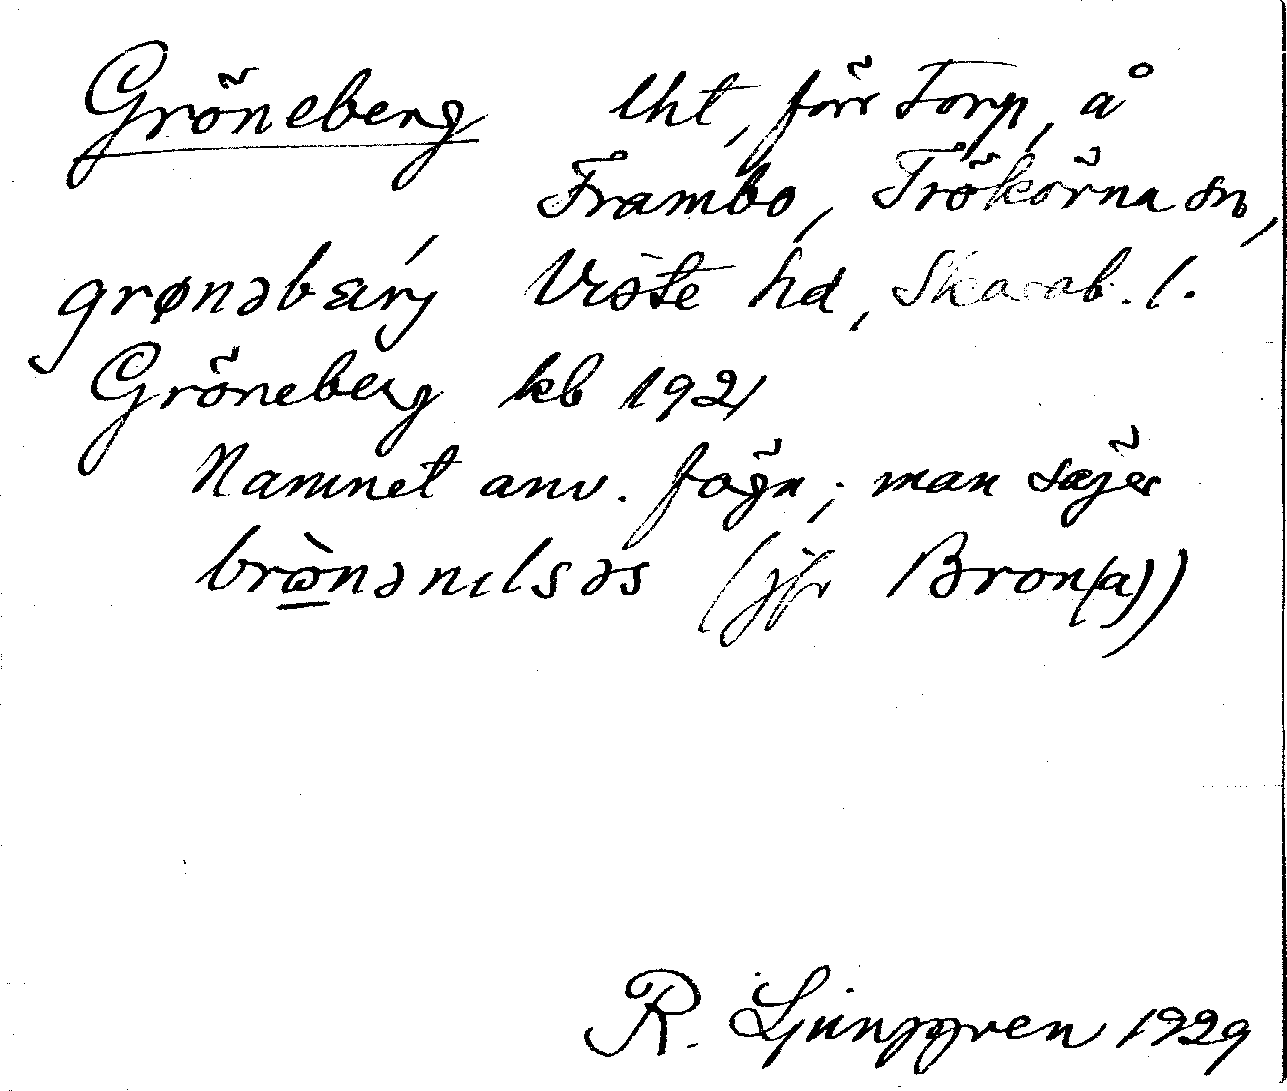 Gröneberg lht, förr Torp, å
Frambo, Trökörna sn,
grønəbærj Viste hd, Skarab. l.
Gröneberg kb 1921
Namnet anv. fåga; man säjer
brωnənılsəs (jfr Bron(a))
R. Ljunggren 1929